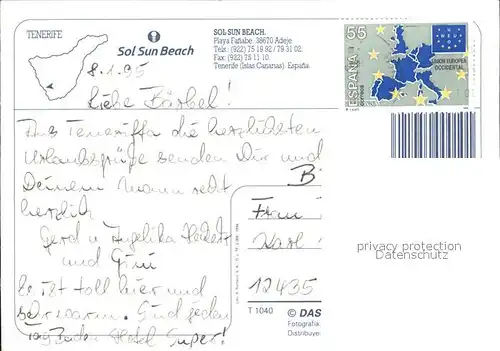 TENERIFE
Sol Sun Beach
SOL SUN BEACH.
Playa Fañabe. 38670 Adeje
Tels: (922) 75 18 92 / 79 31 02.
Fax: (922) 75 11 10.
Tenerife (Islas Canarias). España.
55
ESPAÑA
CORREOS
UNION EUROPEA
OCCIDENTAL
8.1.95
Liebe Bärbel!
Aus Teneriffa die herzlichsten
Urlaubsgrüße senden Dir und
Deinem Mann recht
herzlich
Gerd u Angelika
und
Es ist toll hier und
sehr warm. Sind jeden
Tag Baden Hotel Super!
B
Frau
Karl
12435
privacy protection
Datenschutz
T 1040
© DAS
Fotografia
Distribuye